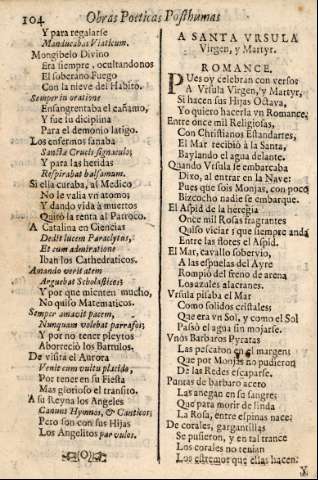 104 Obras Poeticas Posthumas
Y para regalarse
Manducabas Viaticum.
Mongibelo Divino
Era siempre, ocultandonos
El soberano Fuego
Con la nieve del Habito.
Semper in oratione
Ensangrentaba el cañamo,
Y fue lu diciplina
Para el demonio latigo.
Los enfermos sanaba
Sanctæ Crucis signaculo;
Y para las heridas
Respirabat balsamum.
Si ella curaba, al Medico
No le valia vn atomo;
Y dando vida à muertos
Quitò la renta al Parroco.
A Catalina en Ciencias
Dedit lucem Paraclytus,
Et cum admiratione
Iban los Cathedraticos.
Amando verit atem
Arguebat Scholasticos;
Y por que mienten mucho,
No quiso Matematicos.
Semper amavit pacem,
Nunquam volebat parrafos;
Y por no tener pleytos
Aborreciò los Bartulos.
De visita el Aurora
Venit cum vultu placido,
Por tener en su Fiesta
Mas glorioso el transito.
A su Reyna los Angeles
Canunt Hymnos, & Canticos;
Pero son con sus Hijas
Los Angelitos parvulos.
(O)
A SANTA VRSULA
Virgen, y Martyr.
ROMANCE.
PUes oy celebran con versos
A Vrsula Virgen, y Martyr,
Si hacen sus Hijas Octava,
Yo quiero hacerla vn Romance.
Entre once mil Religiosas,
Con Christianos Estandartes,
El Mar recibiò à la Santa,
Baylando el agua delante.
Quando Vrsula se embarcaba
Dixo, al entrar en la Nave:
Pues que sois Monjas, con poco
Bizcocho nadie se embarque.
El Aspid de la heregia
Once mil Rosas fragrantes
Quiso viciar: que siempre anda
Entre las flores el Aspid.
El Mar, cavallo sobervio,
A las espuelas del Ayre
Rompiò del freno de arena
Los azules alacranes.
Vrsula pisaba el Mar
Como solidos cristales;
Que era vn Sol, y como el Sol
Passò el agua sin mojarse.
Vnos Barbaros Pyratas
Las pescaron en el margen;
Que por Monjas no pudieron
De las Redes escaparse.
Puntas de barbaro acero
Las anegan en su sangre;
Que para morir de linda
La Rosa, entre espinas nace.
De corales, gargantillas
Se pusieron, y en tal trance
Los corales no tenian
Los estremos que ellas hacen.
Y